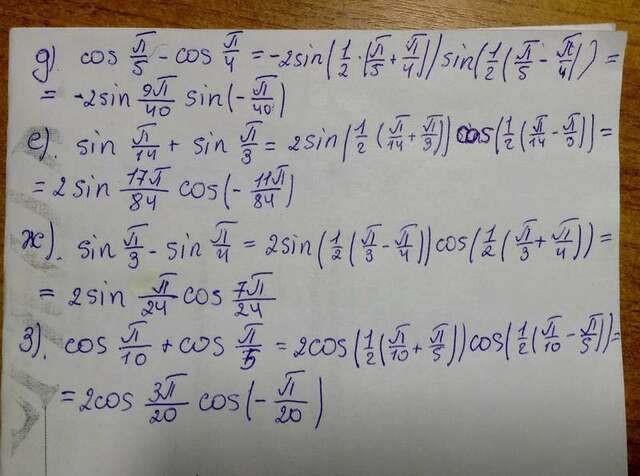 д). cos π/5 - cos π/4 = -2sin(1/2 · (π/5 + π/4)) sin(1/2 (π/5 - π/4)) =
= -2sin 9π/40 sin(-π/40)
е). sin π/14 + sin π/3 = 2sin(1/2 (π/14 + π/3)) cos(1/2 (π/14 - π/3)) =
= 2sin 17π/84 cos(-11π/84)
ж). sin π/3 - sin π/4 = 2sin(1/2 (π/3 - π/4)) cos(1/2 (π/3 + π/4)) =
= 2sin π/24 cos 7π/24
з). cos π/10 + cos π/5 = 2cos(1/2 (π/10 + π/5)) cos(1/2 (π/10 - π/5)) =
= 2cos 3π/20 cos(-π/20)